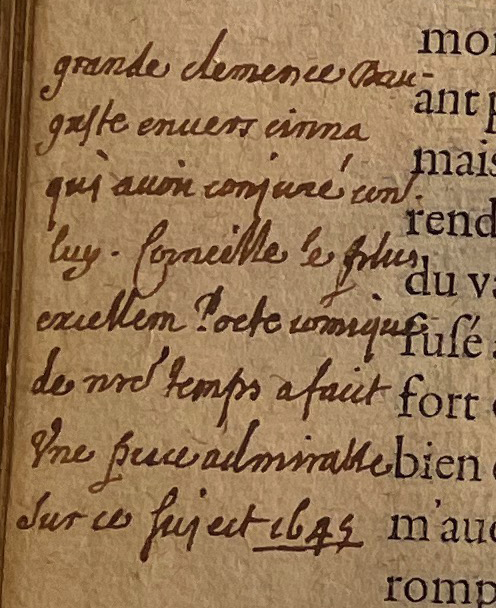 grande clemence dau-
guste enuers cinna
qui auoit conjuré con.
luy. Corneille le plus
excellent Poete comique
de nre temps a faict
Vne piece admirable
sur ce suject 1645
mo
ant p
mais
rend
du va
fusé a
fort
bien
m'auo
romp